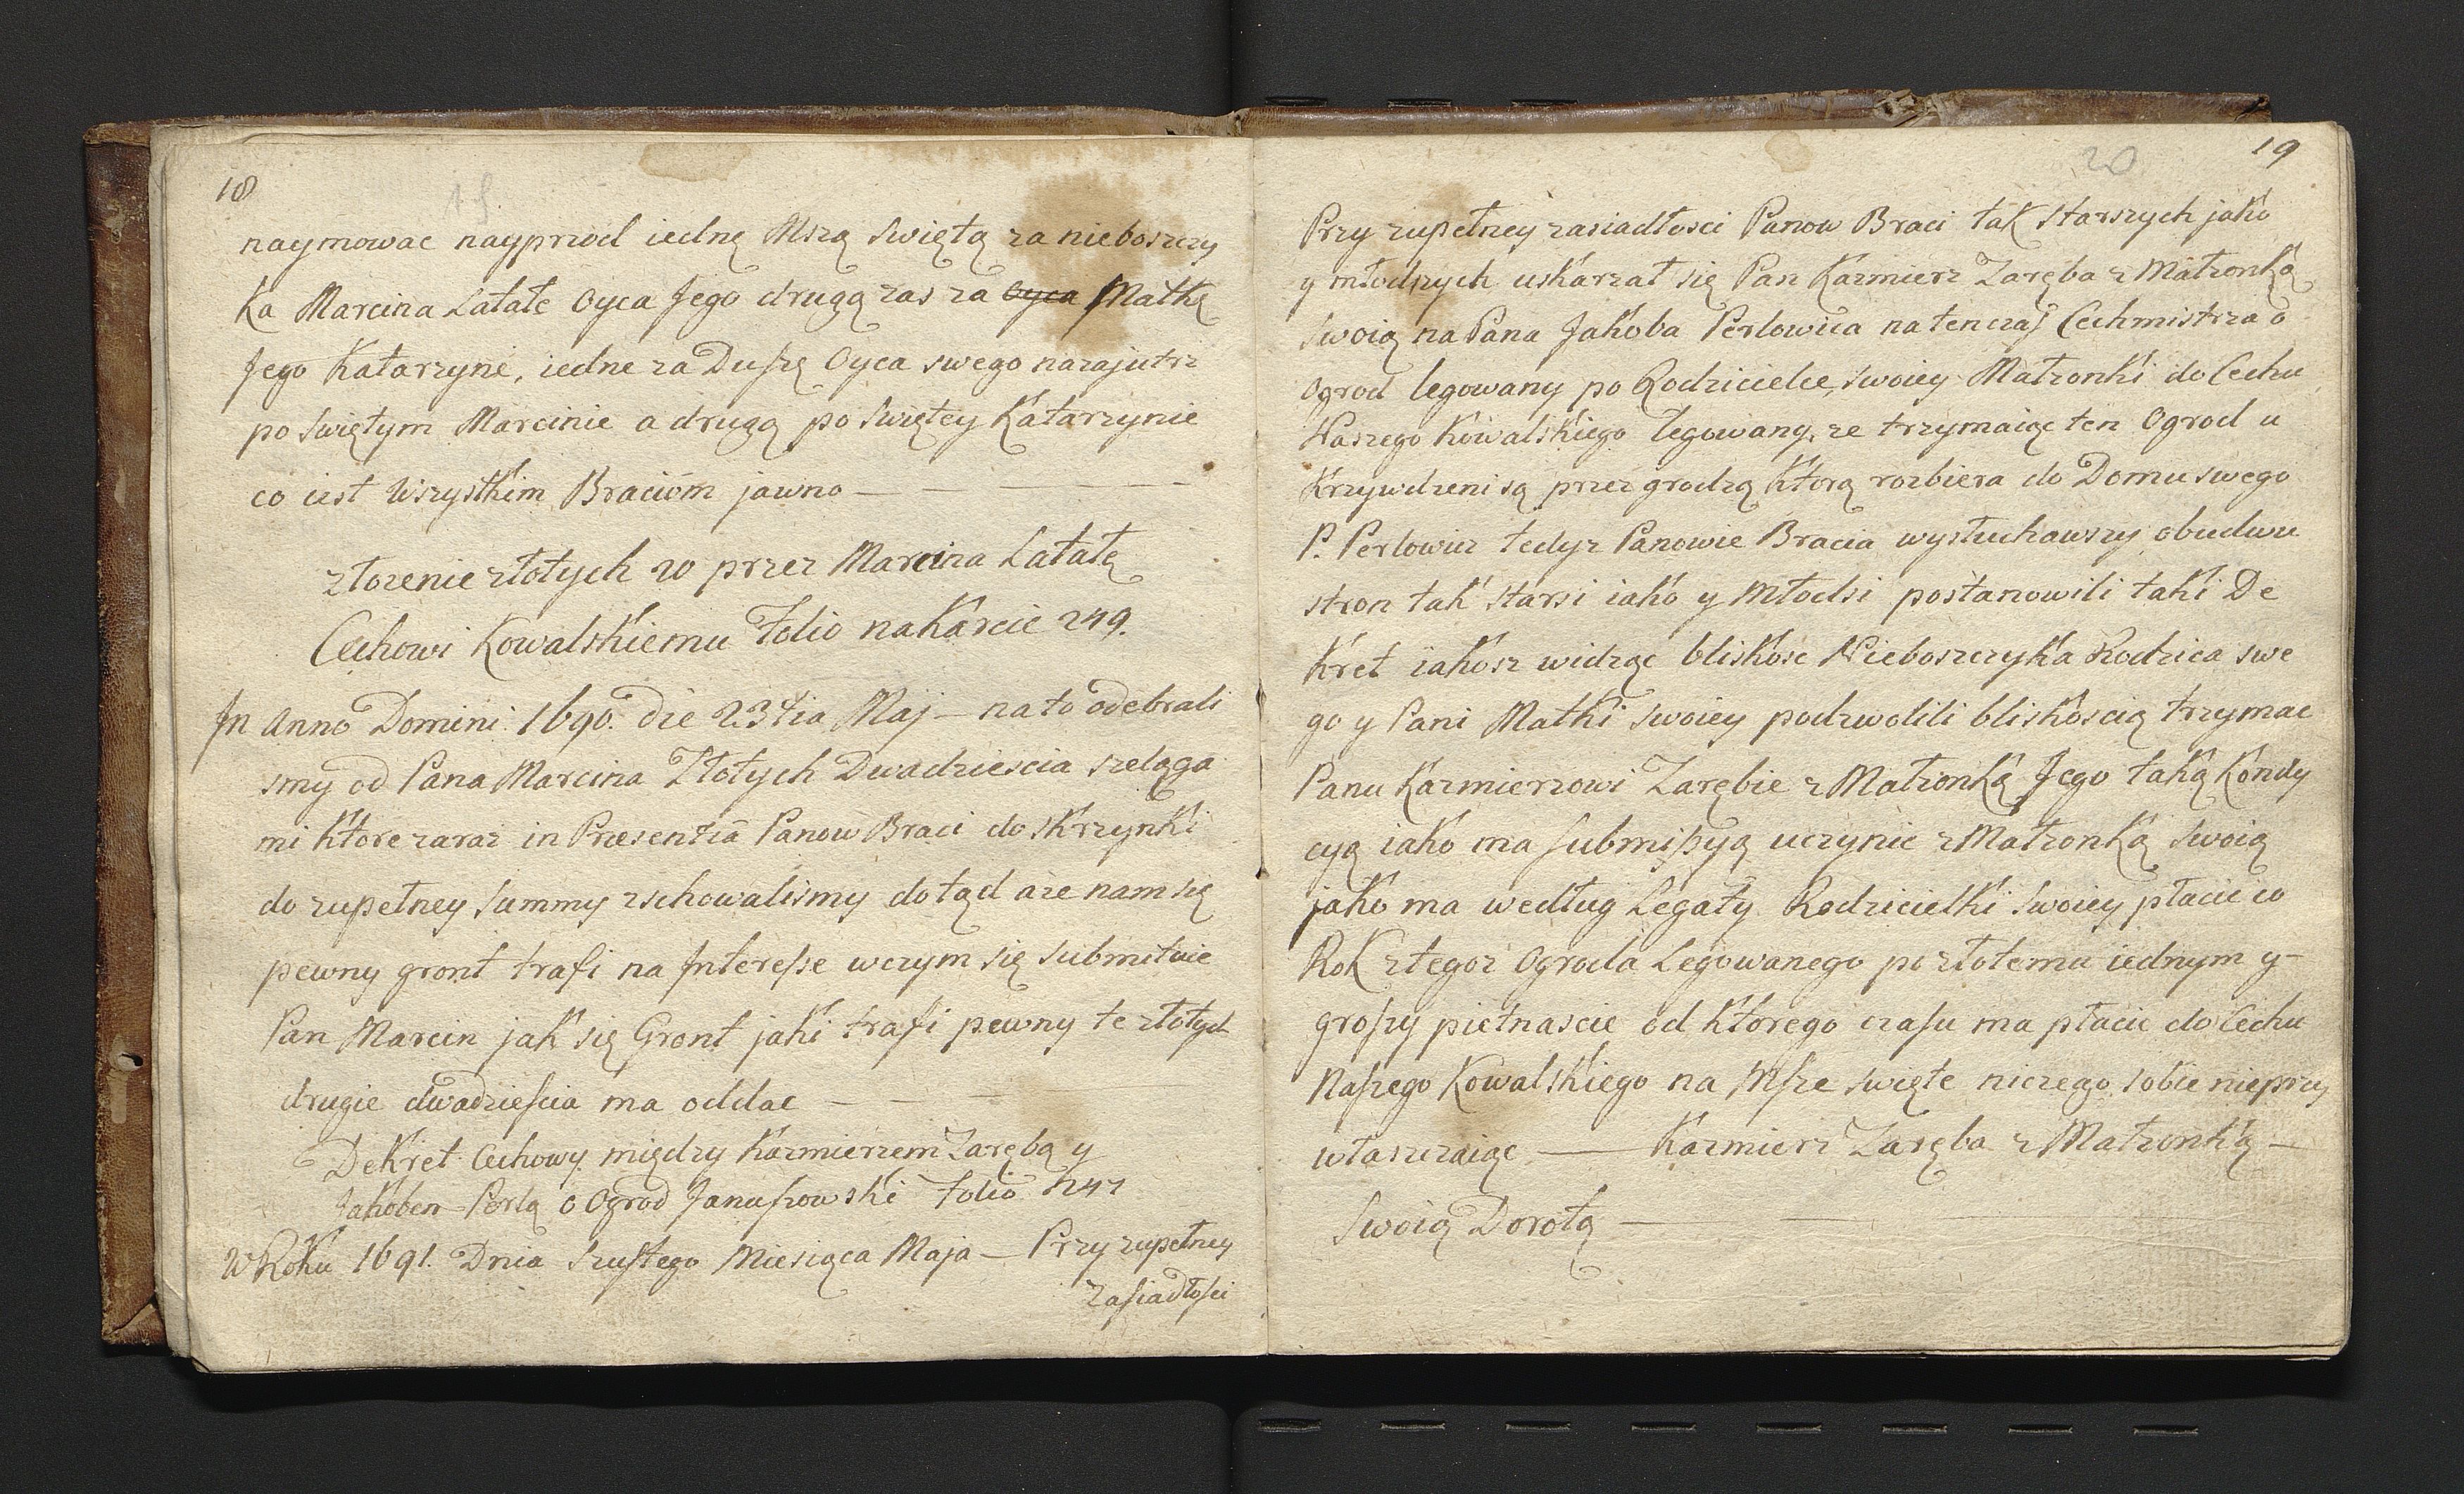 18
19.
naymowac nayprzod iednę Mszą Swiętą za nieboszczy
ka Marcina Latałe Oyca Jego drugą zas za Oyca Matkę
Jego Katarzynę, iedne za Duszę Oyca swego nazajutrz
po Swiętym Marcinie a drugą po Swiętey Katarzynie
co iest Wszystkim Braciom jawno — — — — —
złozenie złotych 20 przez Marcina Latałę
Cechowi Kowalskiemu Folio na Karcie 249.
Jn Anno Domini 1690. die 23tia Maj — na to odebrali
smy od Pana Marcina Złotych Dwadziescia szeląga
mi Ktore zaraz in Præsentia Panow Braci do skrzynki
do zupełney Summy zschowalismy dotąd aze nam się
pewny gront trafi na Jnteresse wczym się submituie
Pan Marcin jak się Gront jaki trafi pewny te złotych
drugie dwadziescia ma oddac — — —
Dekret Cechowy między Kazmierzem Zarębą y
Jakobem Perlą o Ogrod Januszowski folio 247
W Roku 1691. Dnia Szustego Miesiąca Maja — Przy zupełney
Zasiadłosci
20
19
Przy zupełney zasiadłosci Panow Braci tak Starszych jako
y młodszych uskarzał się Pan Kazmierz Zaręba z Małzonką
Swoią na Pana Jakoba Perlowica na ten czas Cechmistrza o
Ogrod legowany po Rodzicielce Swoiey Małzonki do Cechu
Naszego Kowalskiego legowany, ze trzymaiąc ten Ogrod u
Krzywdzeni są przez grodzą Ktorą rozbiera do Domu swego
P. Perlowicz tedyz Panowie Bracia wysłuchawszy obudwu
stron tak starsi iako y Młodsi postanowili taki De
kret iakosz widząc bliskosc Nieboszczyka Rodzica swe
go y Pani Matki Swoiey podzwolili bliskoscią trzymac
Panu Kazmierzowi Zarębie z Małzonką Jego taką Kondy
cyą iako ma Submissyą uczynic z Małzonką Swoią
jako ma według Legaty Rodzicielki Swoiey płacic co
Rok z tegoz Ogroda Legowanego po złotemu iednym y-
groszy piętnascie od Ktorego czasu ma płacic do Cechu
Naszego Kowalskiego na Msze swięte niczego sobie nieprzy
właszczaiąc — Kazmierz Zaręba z Małzonką —
Swoią Dorotą — —